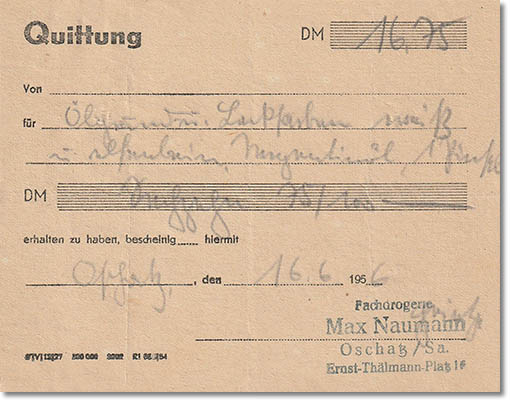 Quittung DM 16,75
Von
für Ölgrund u. Lackfarben weiß
u elfenbein, Terpentinöl, 1 Pinsel
DM Sechzehn 75/100
erhalten zu haben, bescheinig hiermit
Oschatz, den 16.6 1956
Fachdrogerie
Max Naumann
Oschatz/Sa.
Ernst-Thälmann-Platz 16